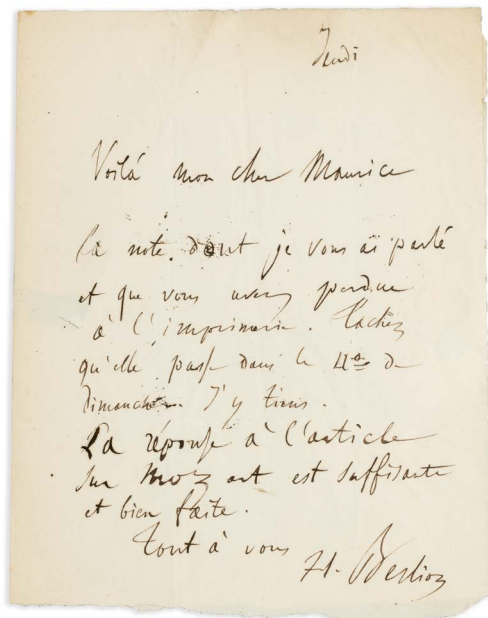 Jeudi
Voilà mon cher Maurice
la note dont je vous ai parlé
et que vous avez perdue
à l'imprimerie. Tachez
qu'elle passe dans le No de
dimanche. J'y tiens.
La réponse à l'article
sur Mozart est suffisante
et bien faite.
Tout à vous
H. Berlioz